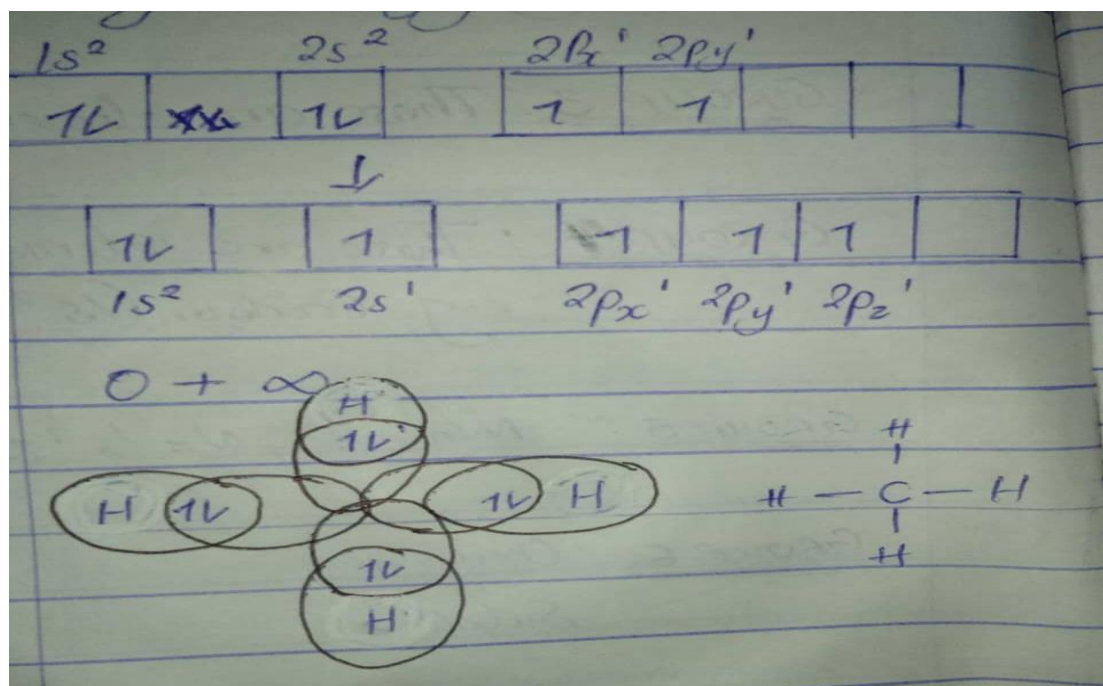 1s² 2s² 2Px' 2Py'
1L 1L 1 1
↓
1L 1 1 1 1
1s² 2s' 2px' 2py' 2pz'
O + ∞
H
1L
H 1L 1L H
1L
H
H
H — C — H
H